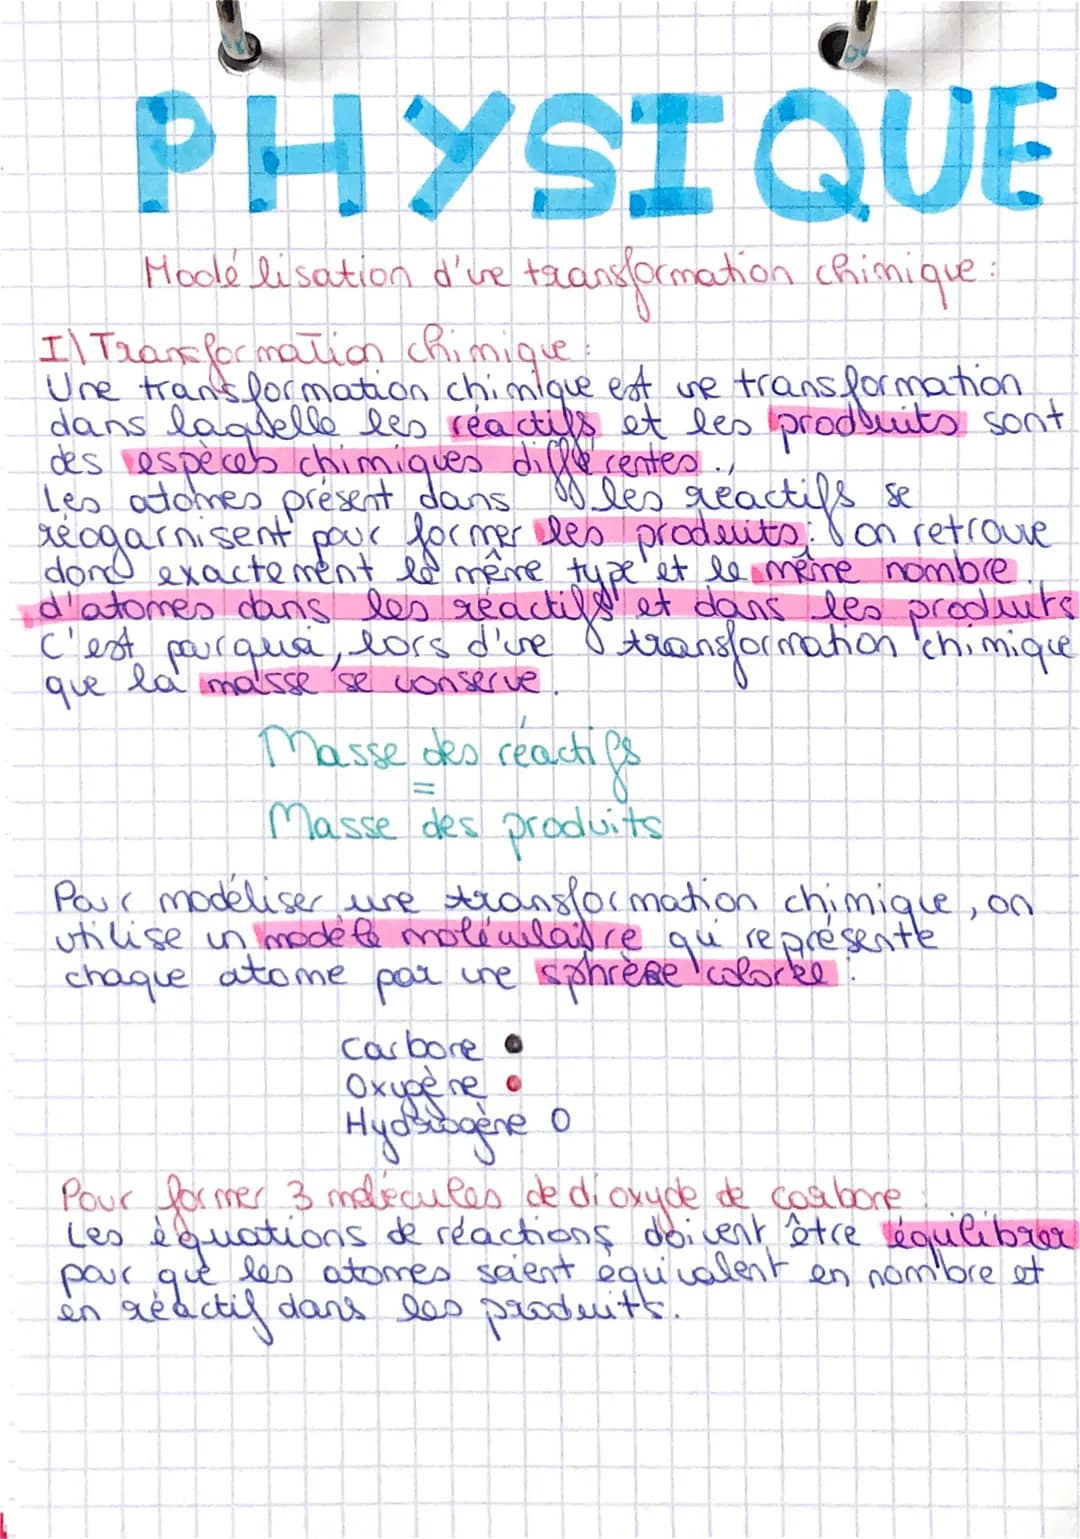 PHYSIQUE
Modélisation d'une transformation chimique :
I\ Transformation chimique :
Une transformation chimique est une transformation
dans laquelle les réactifs et les produits sont
des espèces chimiques différentes.
Les atomes présent dans les réactifs se
réogarnisent pour former les produits : on retrouve
donc exactement le même type et le même nombre
d'atomes dans les réactifs et dans les produits
C'est pourquoi, lors d'une transformation chimique
que la masse se conserve.
Masse des réactifs
=
Masse des produits
Pour modéliser une transformation chimique, on
utilise un modèle moléculaire qui représente
chaque atome par une sphrère colorée :
Carbone
Oxygène
Hydrogène
Pour former 3 molécules de dioxyde de carbone :
Les équations de réactions doivent être équilibrer
pour que les atomes soient équivalent en nombre et
en réactif dans les produits.